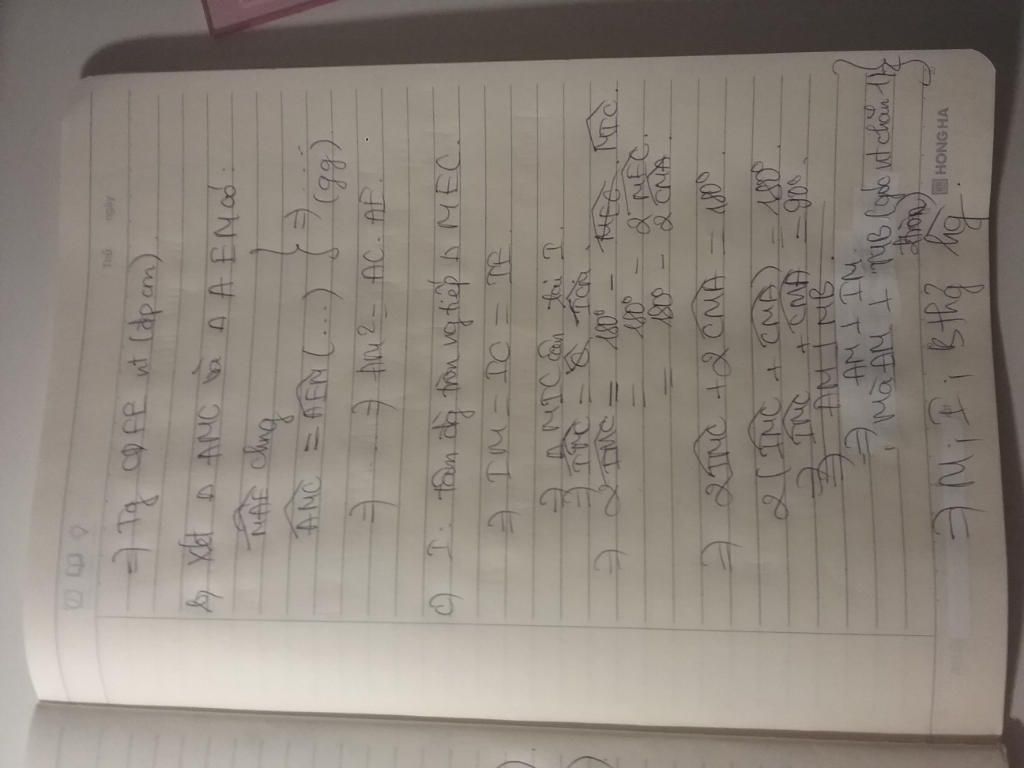 Thứ ngày
=> Tg CQFE nt (đpcm)
b) Xét Δ AMC và Δ AEM có:
MAE chung
AMC = AEM (...) } => ... (gg)
=> ... => AM² = AC. AE.
c) I: tâm đg tròn ngtiếp Δ MEC.
=> IM = IC = IE
=> Δ MIC cân tại I
=> IMC =
=> 2 IMC = 180° - MIC.
= 180° - 2 MEC.
= 180 - 2 CMA
=> 2IMC + 2 CMA = 180°.
2(IMC + CMA) = 180°
=> IMC + CMA = 90°
=> AM ⊥ IM
Mà AM ⊥ MB (góc nt chắn 1/2 đtròn)
=> M; I; B thg hg.
HONG HA